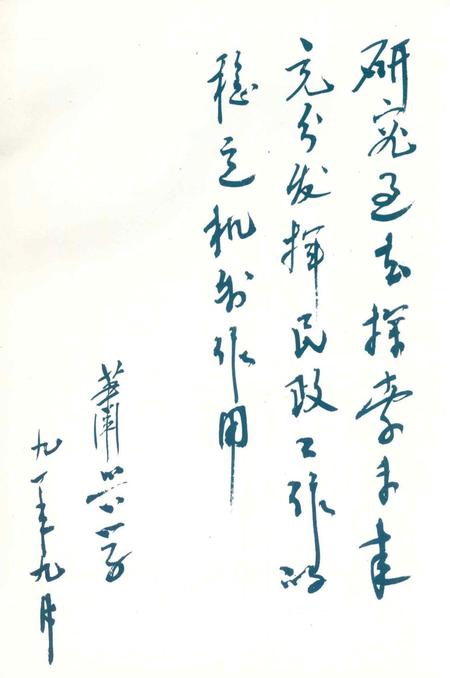 研究过去探索未来
充分发挥民政工作的
稳定机制作用
萧
九一年九月